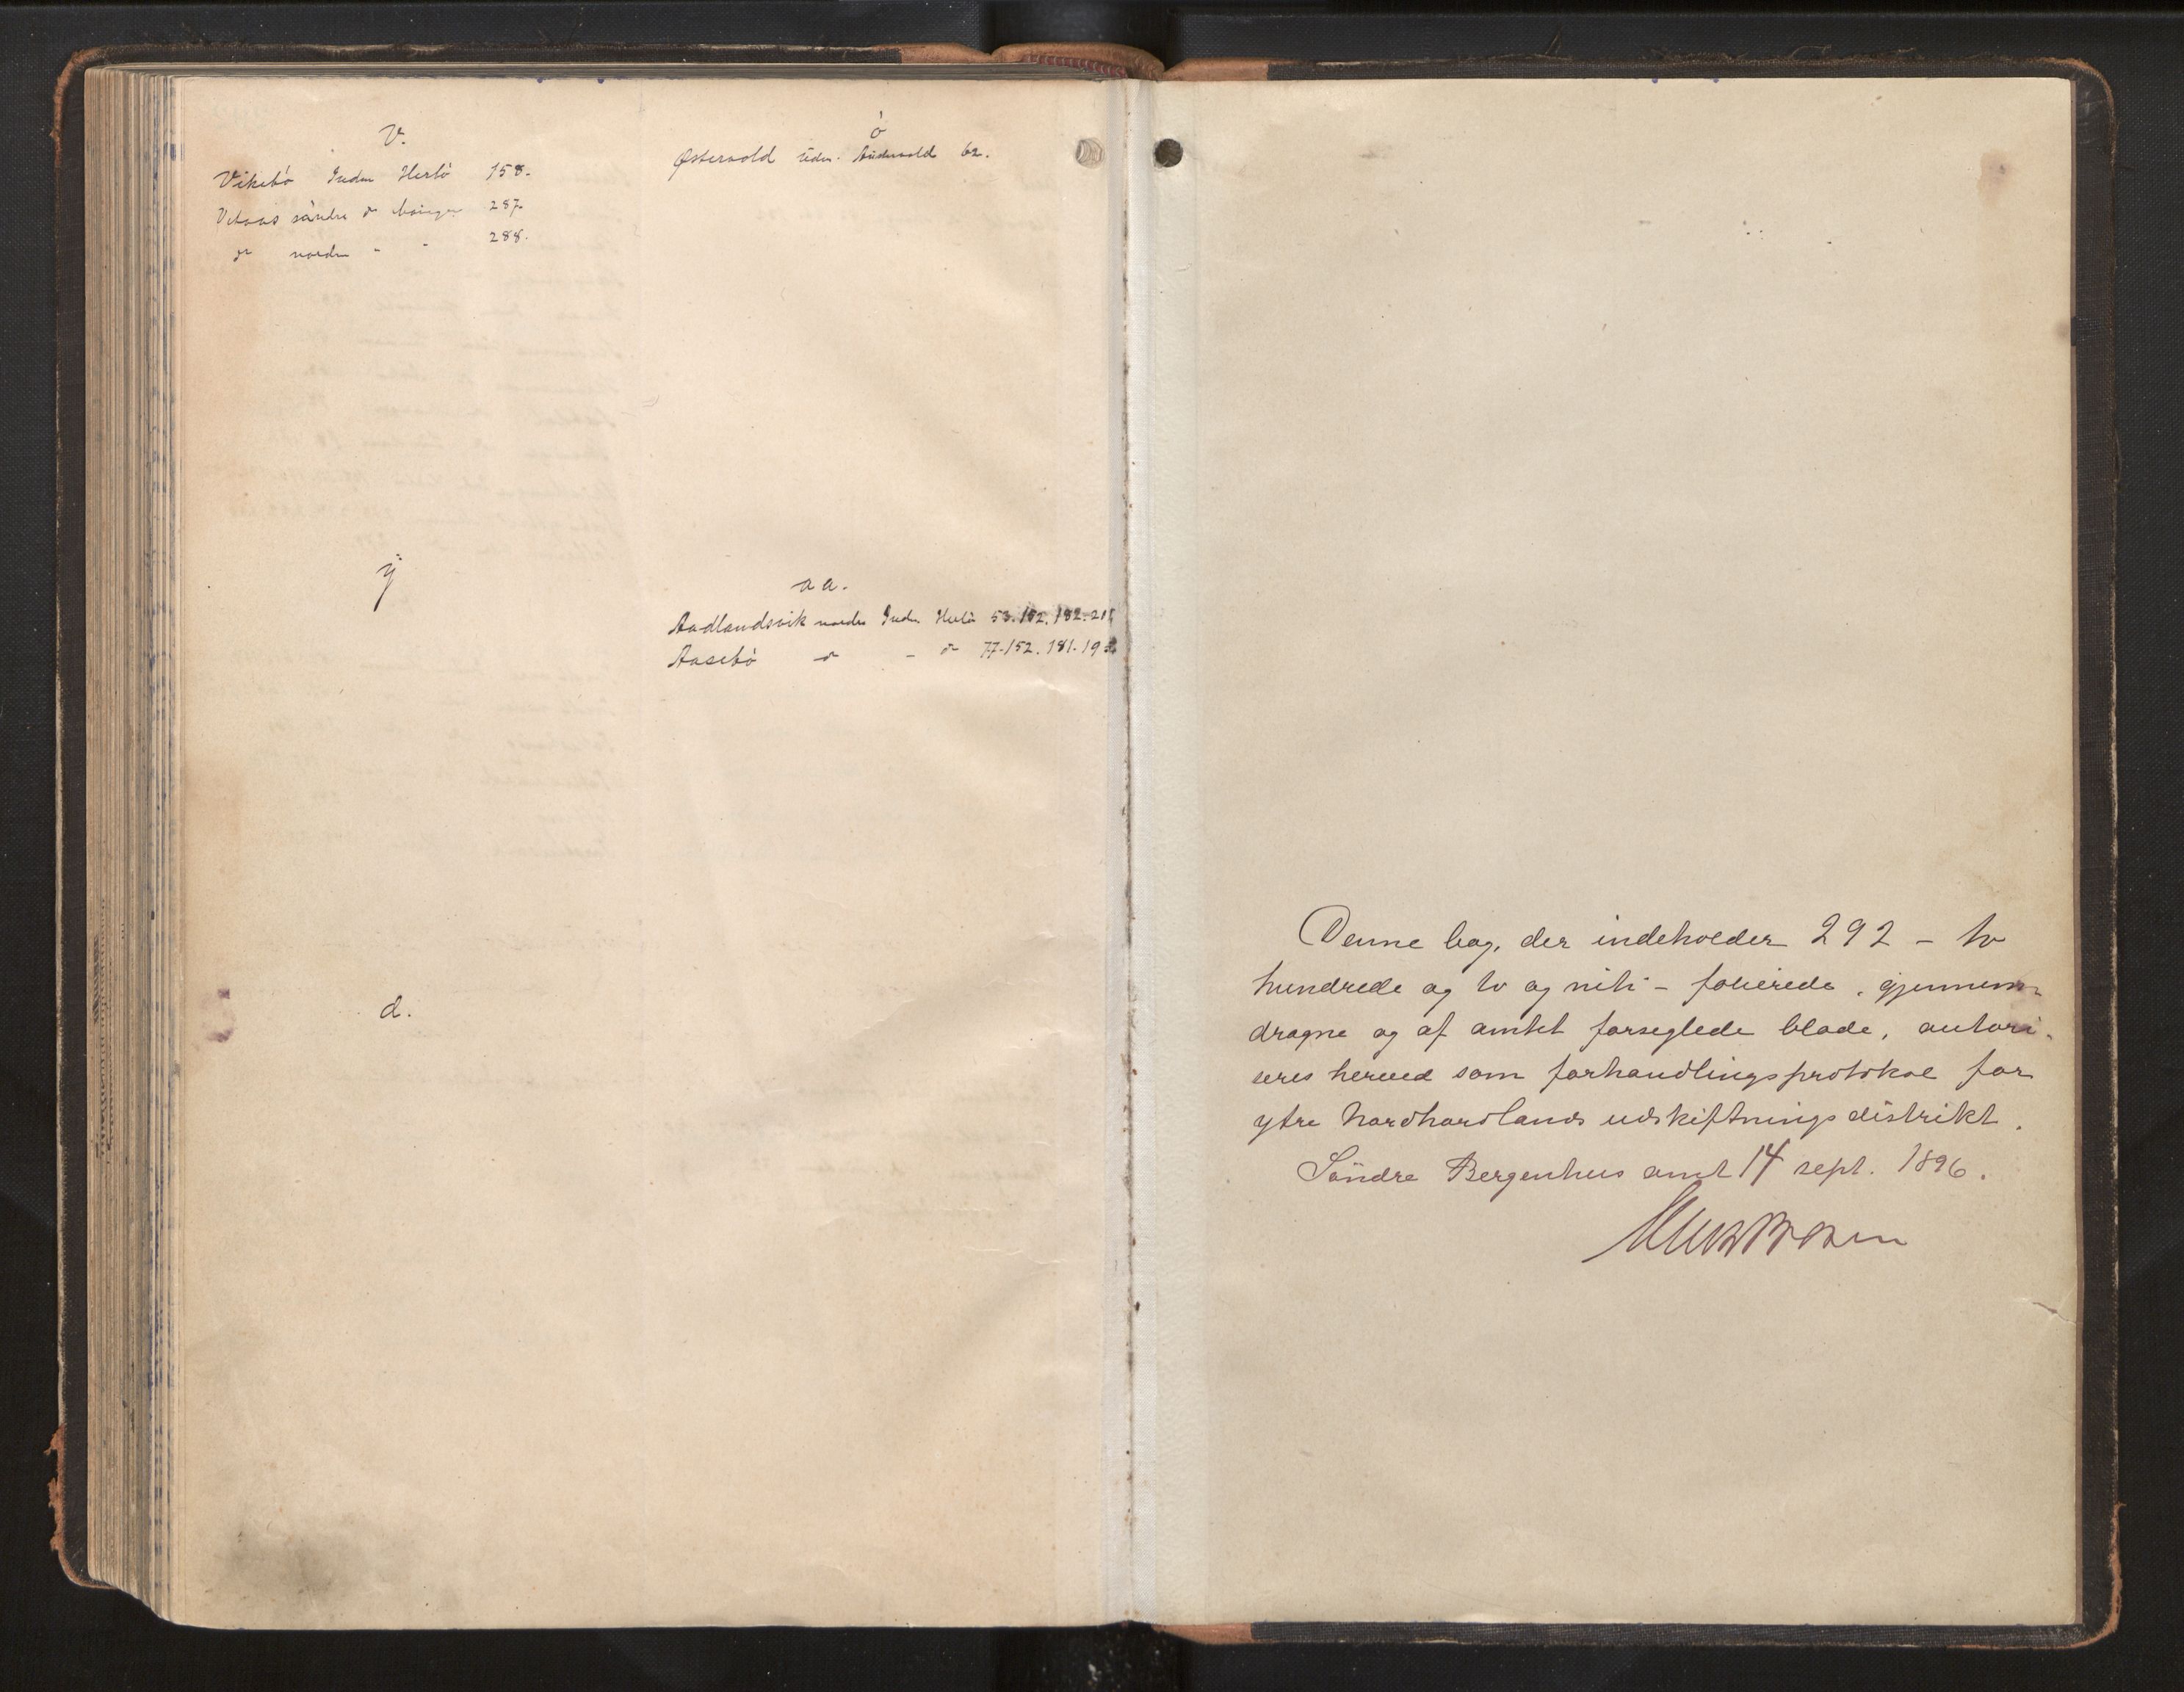 V.
Vikebö Indre Herlö 158.
Vetaas söndre do 287
do nordre - - 288.
ij
d.
Ö
Østervold Undr. Austevold 62.
aa.
Aadlandsvik nordre Indre Herlö 53.152.182-21
Aasebö do - do 77-152.181-19
Denne bog, der indeholder 292 - to
hundrede og to og niti - folierede, gjennem-
dragne og af amtet forseglede blade, autori-
seres herved som forhandlingsprotokol for
ytre Nordhordlands udskiftningsdistrikt.
Söndre Bergenhus amt 14 sept. 1896.